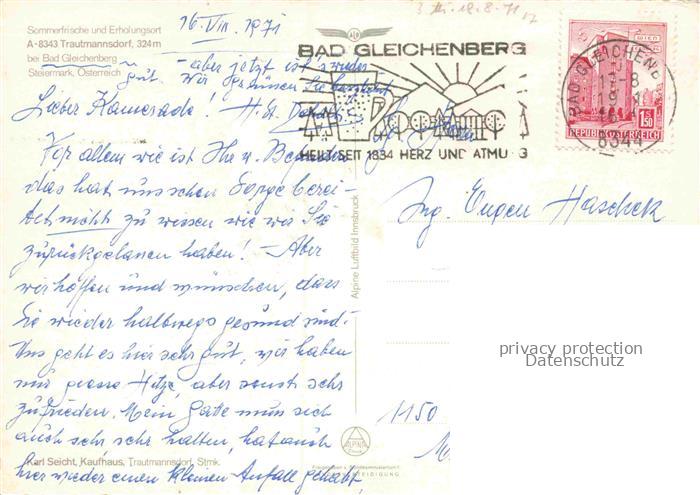 Sommerfrische und Erholungsort
A-8343 Trautmannsdorf, 324 m
bei Bad Gleichenberg
Steiermark, Österreich
16. VIII. 1971
- aber jetzt ist's wieder
gut. Wir
Lieber Kamerade!
Vor allem wie ist Ihr w. Befinden
das hat uns schon Sorge berei-
tet nicht zu wissen wie wir Sie
zurückgelassen haben! - Aber
wir hoffen und wünschen, dass
Sie wieder halbwegs gesund sind.
Uns geht es hier sehr gut, wir haben
nur grosse Hitze, aber sonst sehr
zufrieden. Mein Gatte muss sich
auch sehr sehr halten, hat auch
hier wieder einen kleinen Anfall gehabt,
Karl Seicht, Kaufhaus, Trautmannsdorf, Stmk.
Alpine Luftbild Innsbruck
BAD GLEICHENBERG
HEILT SEIT 1834 HERZ UND ATMUNG
WIEN
1.50
REPUBLIK ÖSTERREICH
BAD GLEICHENB
8344
Ing. Eugen Haschek
privacy protection
Datenschutz
1150
ALPINE